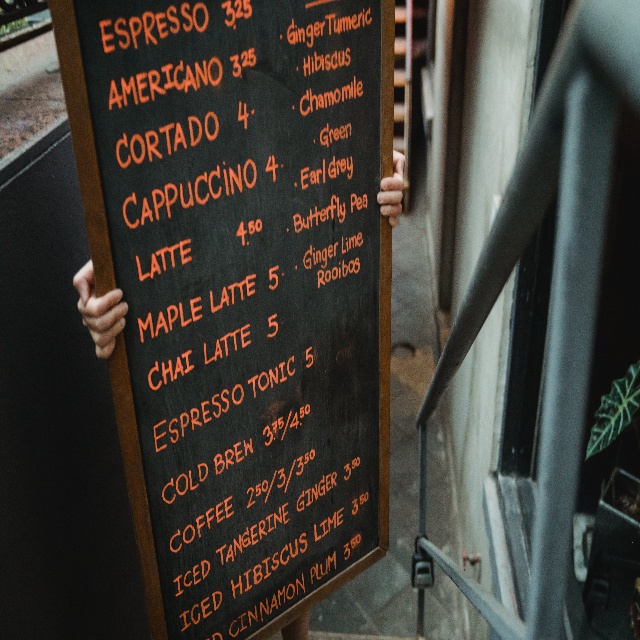 ESPRESSO 3.25
AMERICANO 3.25
CORTADO 4.
CAPPUCCINO 4.
LATTE 4.50
MAPLE LATTE 5.
CHAI LATTE 5
ESPRESSO TONIC 5
COLD BREW 3.75/4.50
COFFEE 2.50/3/3.50
ICED TANGERINE GINGER 3.50
ICED HIBISCUS LIME 3.50
CINNAMON PLUM 3.50
· Ginger Turmeric
· Hibiscus
· Chamomile
· Green
· Earl Grey
· Butterfly Pea
· Ginger Lime
Rooibos